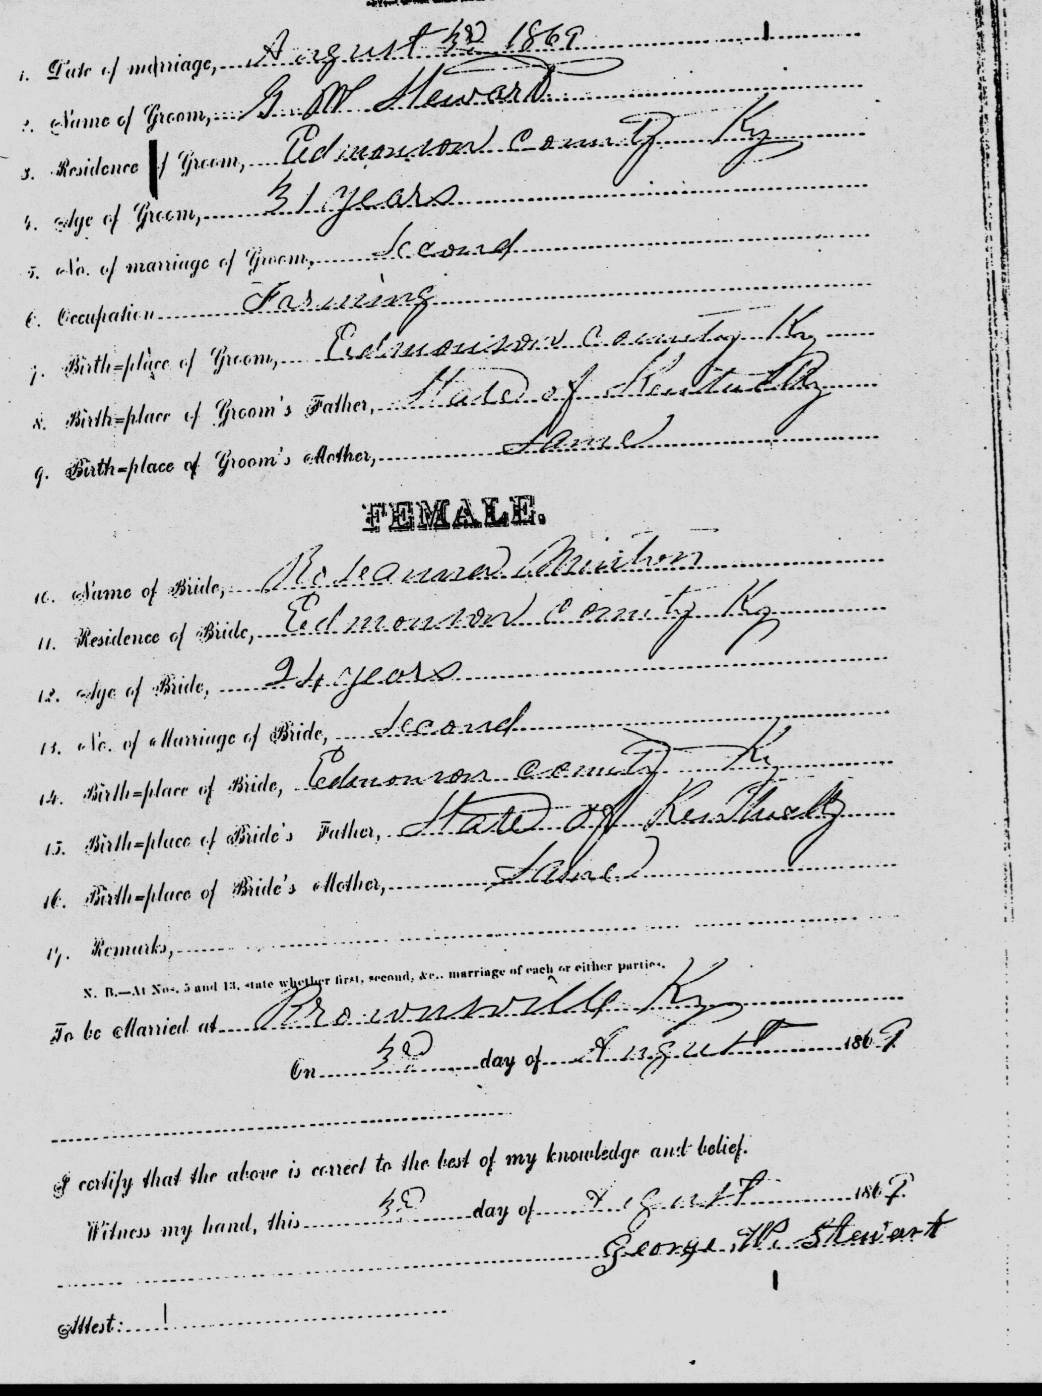 1. Date of marriage, August 3d 1869
2. Name of Groom, G. W Stewart
3. Residence of Groom, Edmonson County Ky
4. Age of Groom, 31 years
5. No. of marriage of Groom, Second
6. Occupation Farming
7. Birth-place of Groom, Edmonson County Ky
8. Birth-place of Groom's Father, State of Kentucky
9. Birth-place of Groom's Mother, Same
FEMALE.
10. Name of Bride, Roseanna Minton
11. Residence of Bride, Edmonson County Ky
12. Age of Bride, 24 years
13. No. of Marriage of Bride, Second
14. Birth-place of Bride, Edmonson County Ky
15. Birth-place of Bride's Father, State of Kentucky
16. Birth-place of Bride's Mother, Same
17. Remarks,
N. B.—At Nos. 5 and 13, state whether first, second, &c., marriage of each or either parties.
To be Married at Brownsville Ky
On 3d day of August 1869
I certify that the above is correct to the best of my knowledge and belief.
Witness my hand, this 3d day of August 1869.
George W. Stewart
Attest: